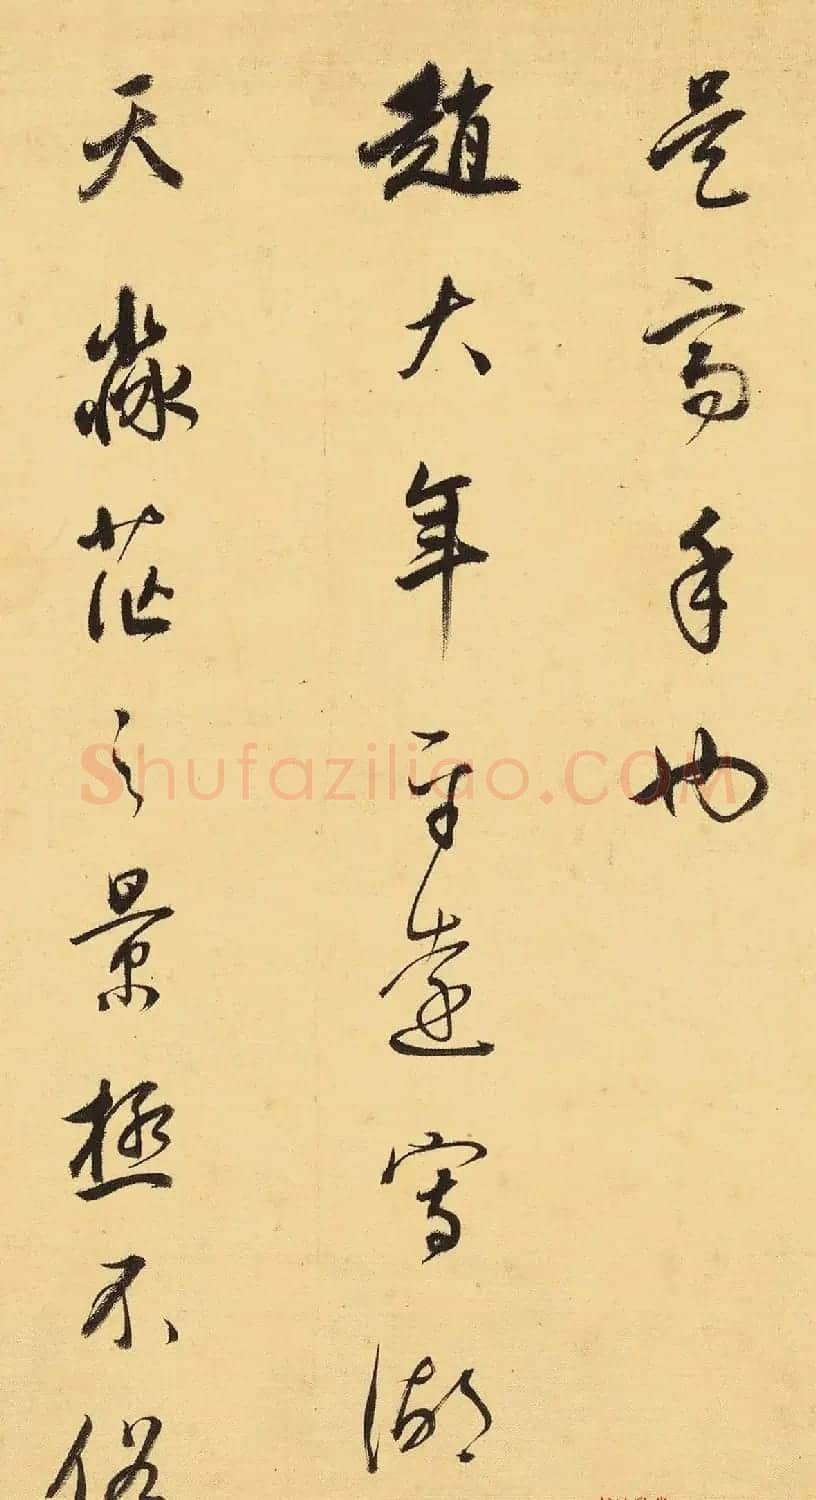 是高手也
趙大年平遠寫湖
天淼茫之景極不俗
Shufaziliao.COM